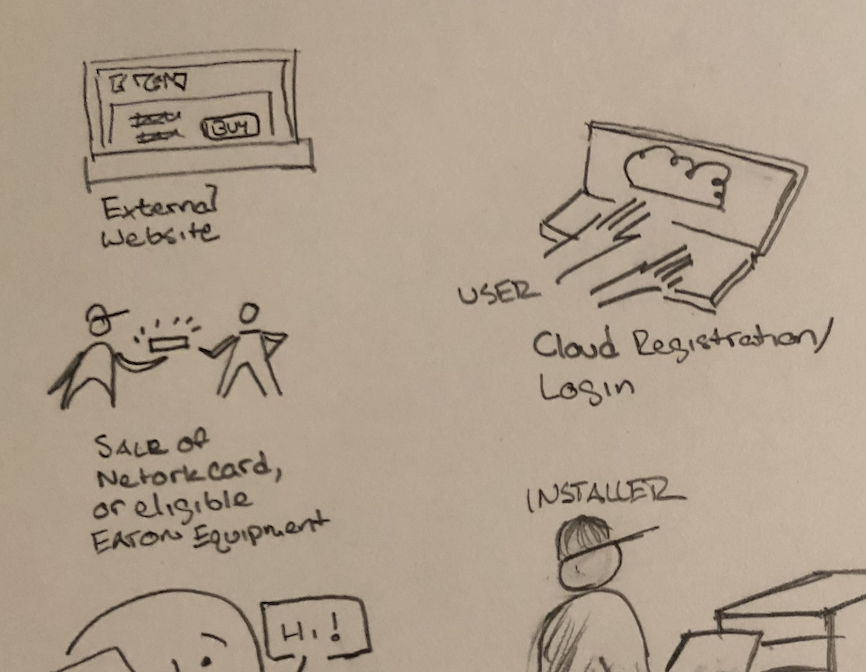 EATON
BUY
External
Website
USER
Cloud Registration/
Login
SALE of
Netork card,
or eligible
EATON Equipment
INSTALLER
Hi!